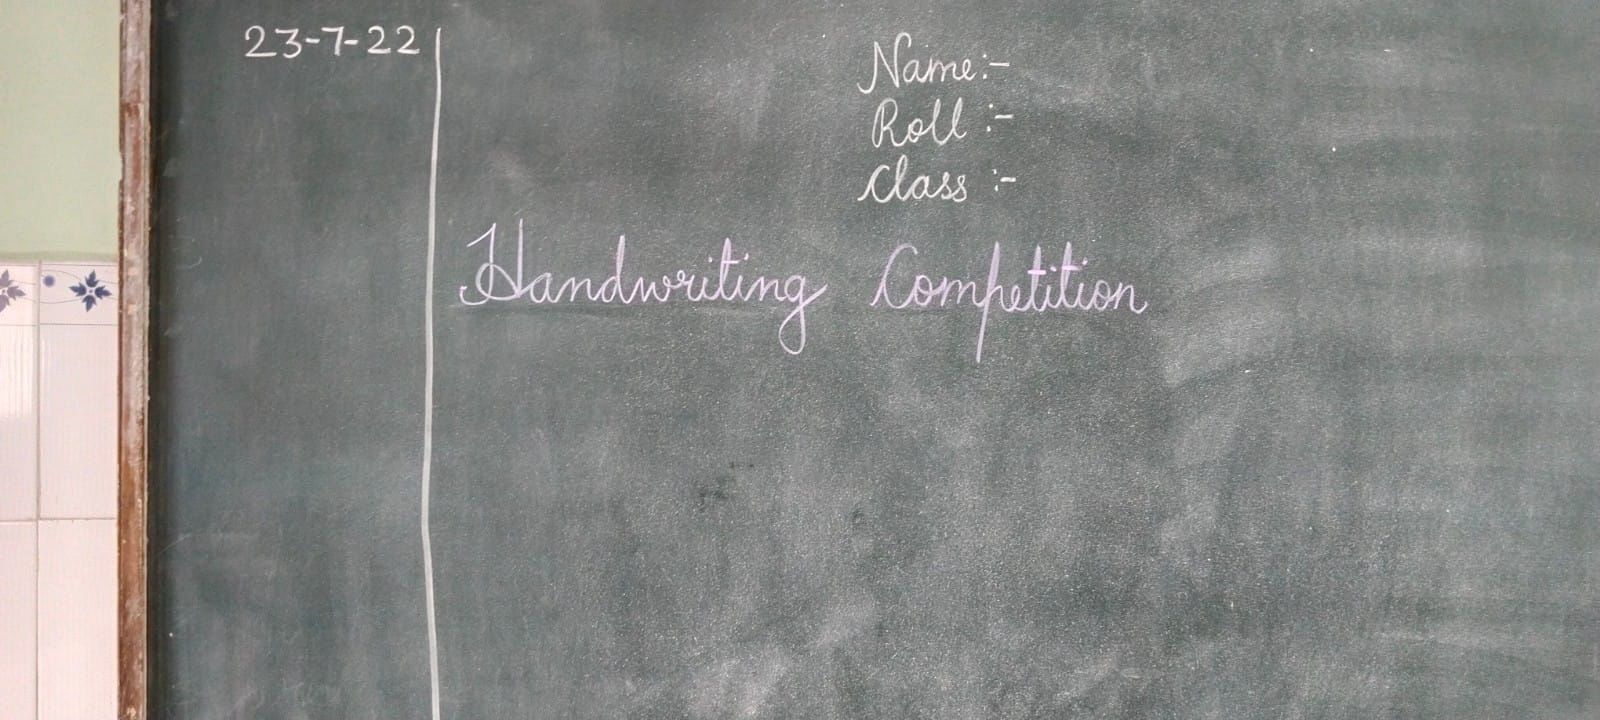 23-7-22
Name:-
Roll :-
Class :-
Handwriting Competition